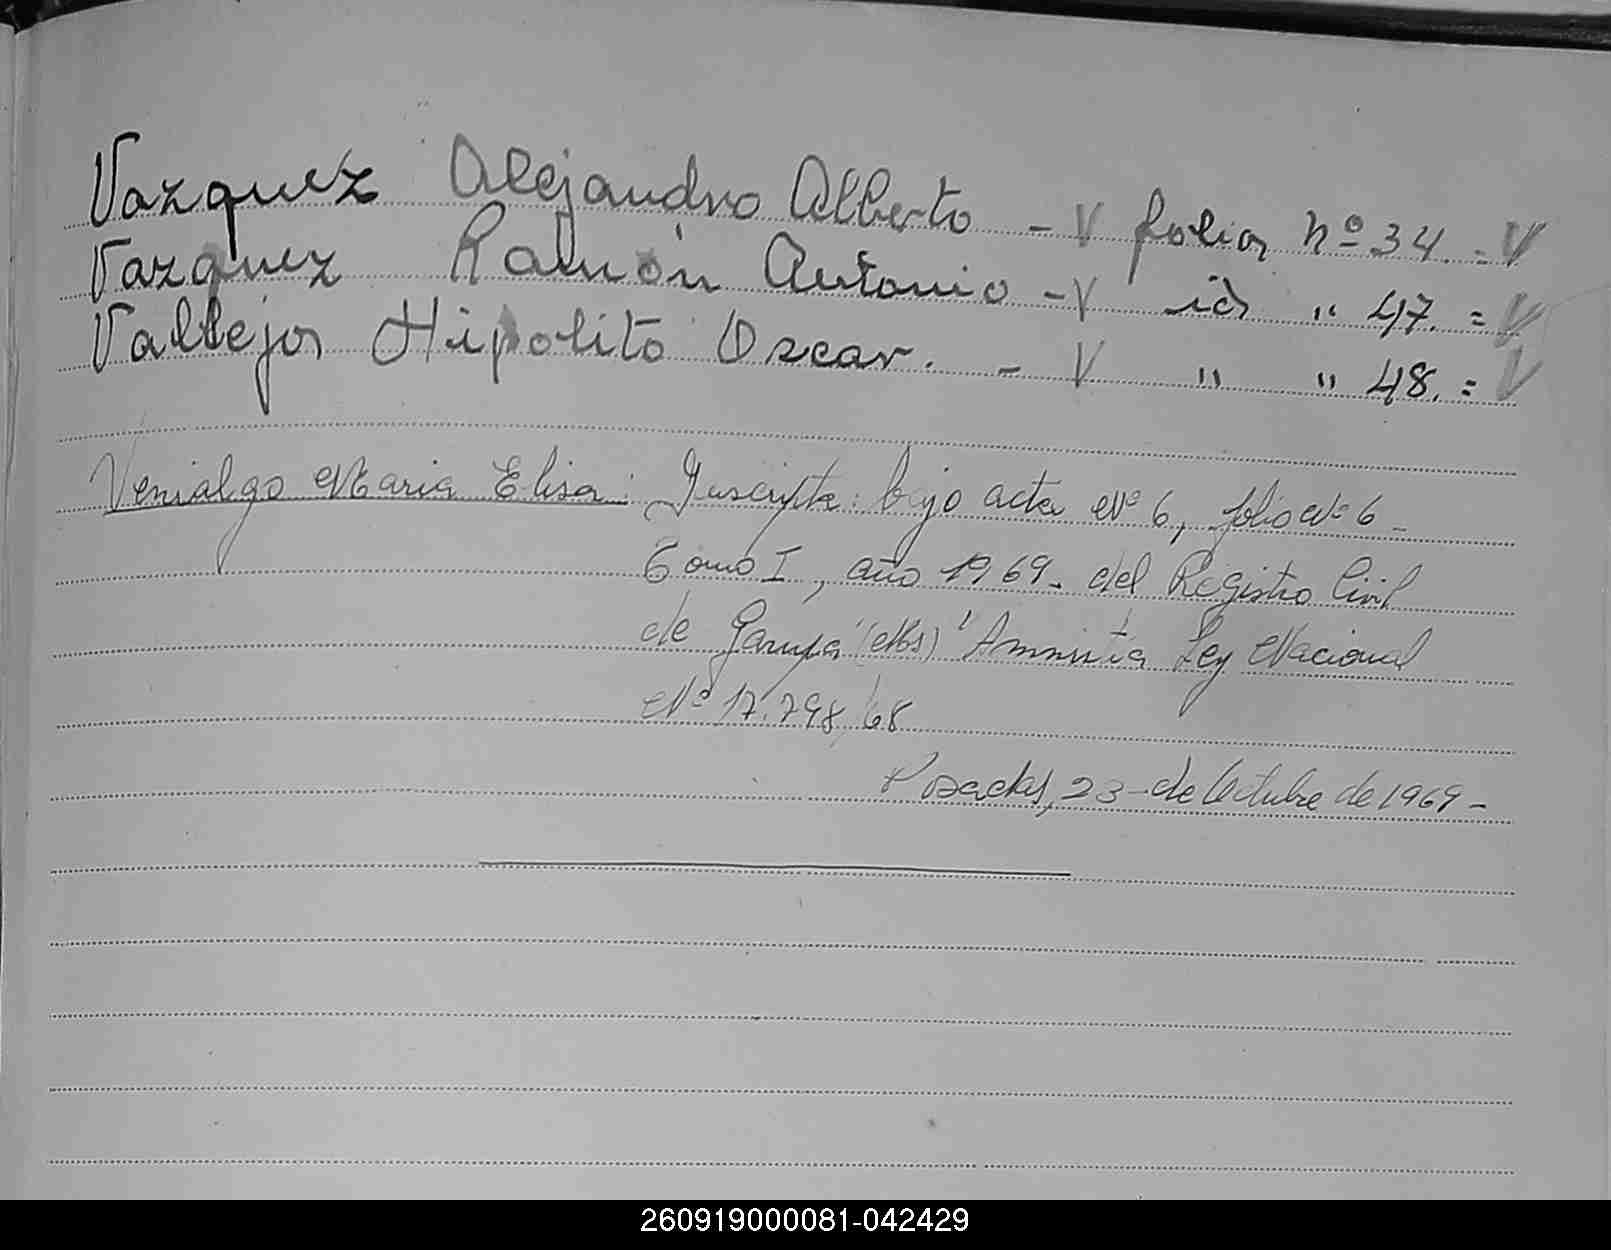 Vazquez Alejandro Alberto - V folios nº 34. = V
Vazquez Ramón Antonio - V id " 47. = V
Vallejos Hipolito Oscar. - V " " 48. = V
Venialgo Maria Elisa: Inscripta: bajo acta Nº 6, folio Nº 6 -
Tomo I, año 1969 - del Registro Civil
de Garupá (Ms) "Amnistía Ley Nacional
Nº 17.798/68
Posadas, 23 - de Octubre de 1969 -
260919000081-042429